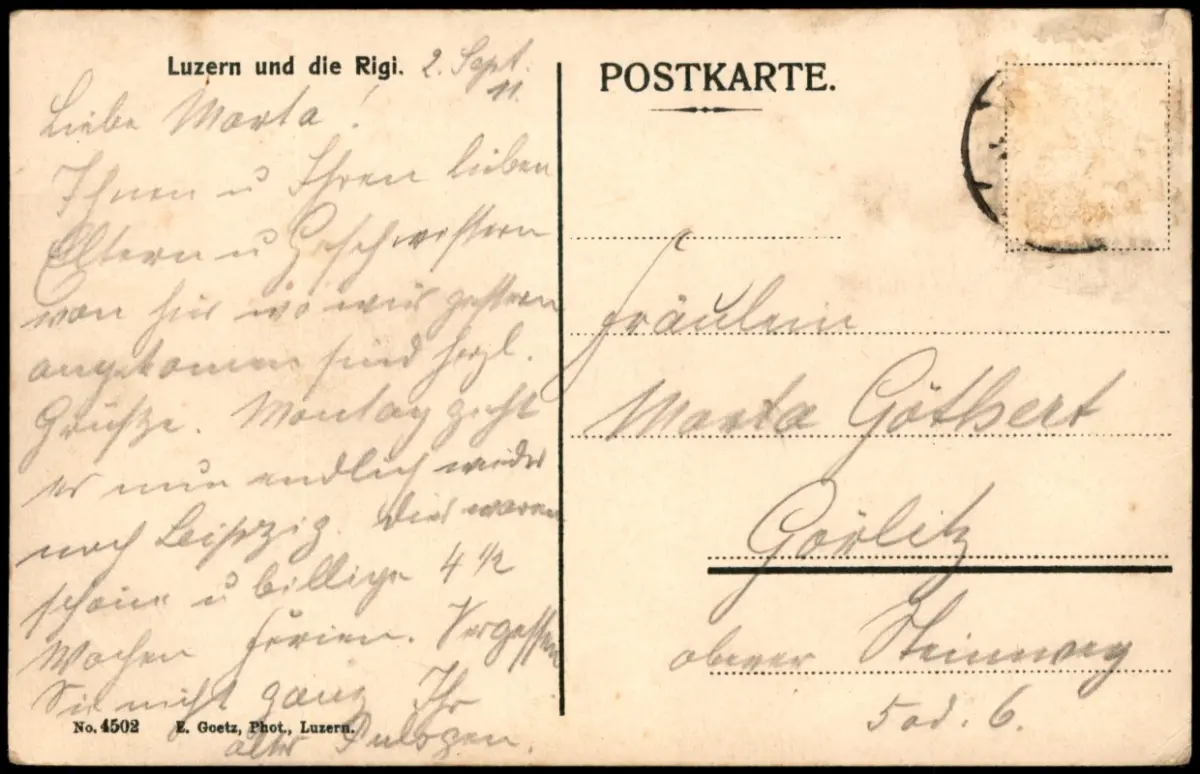 Luzern und die Rigi. 2. Sept. 11.
Liebe Marta!
Ihnen u Ihren lieben
Eltern u Geschwistern
von hier wo wir gestern
angekomen sind herzl.
Grüße. Montag geht
es nun endlich wieder
nach Leipzig. Dies waren
schöne u billige 4 1/2
Wochen Ferien. Vergessen
Sie nicht ganz Ihr
alter
No. 4502 E. Goetz, Phot., Luzern.
POSTKARTE.
Fräulein
Marta Göthert
Görlitz
oberer Steinweg
5 od. 6.